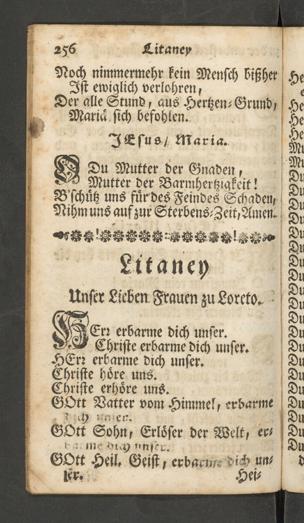 256 Litaney
Noch nimmermehr kein Mensch bißher
Ist ewiglich verlohren,
Der alle Stund, aus Hertzen-Grund,
Mariä sich befohlen.
JEsus/ Maria.
O Du Mutter der Gnaden,
Mutter der Barmhertzigkeit!
B'schütz uns für des Feindes Schaden,
Nihm uns auf zur Sterbens-Zeit, Amen.
Litaney
Unser Lieben Frauen zu Loreto.
HErr erbarme dich unser.
Christe erbarme dich unser.
HErr erbarme dich unser.
Christe höre uns.
Christe erhöre uns.
GOtt Vatter vom Himmel, erbarme
dich unser.
GOtt Sohn, Erlöser der Welt, er-
barme dich unser.
GOtt Heil. Geist, erbarme dich un-
ser. Hei-